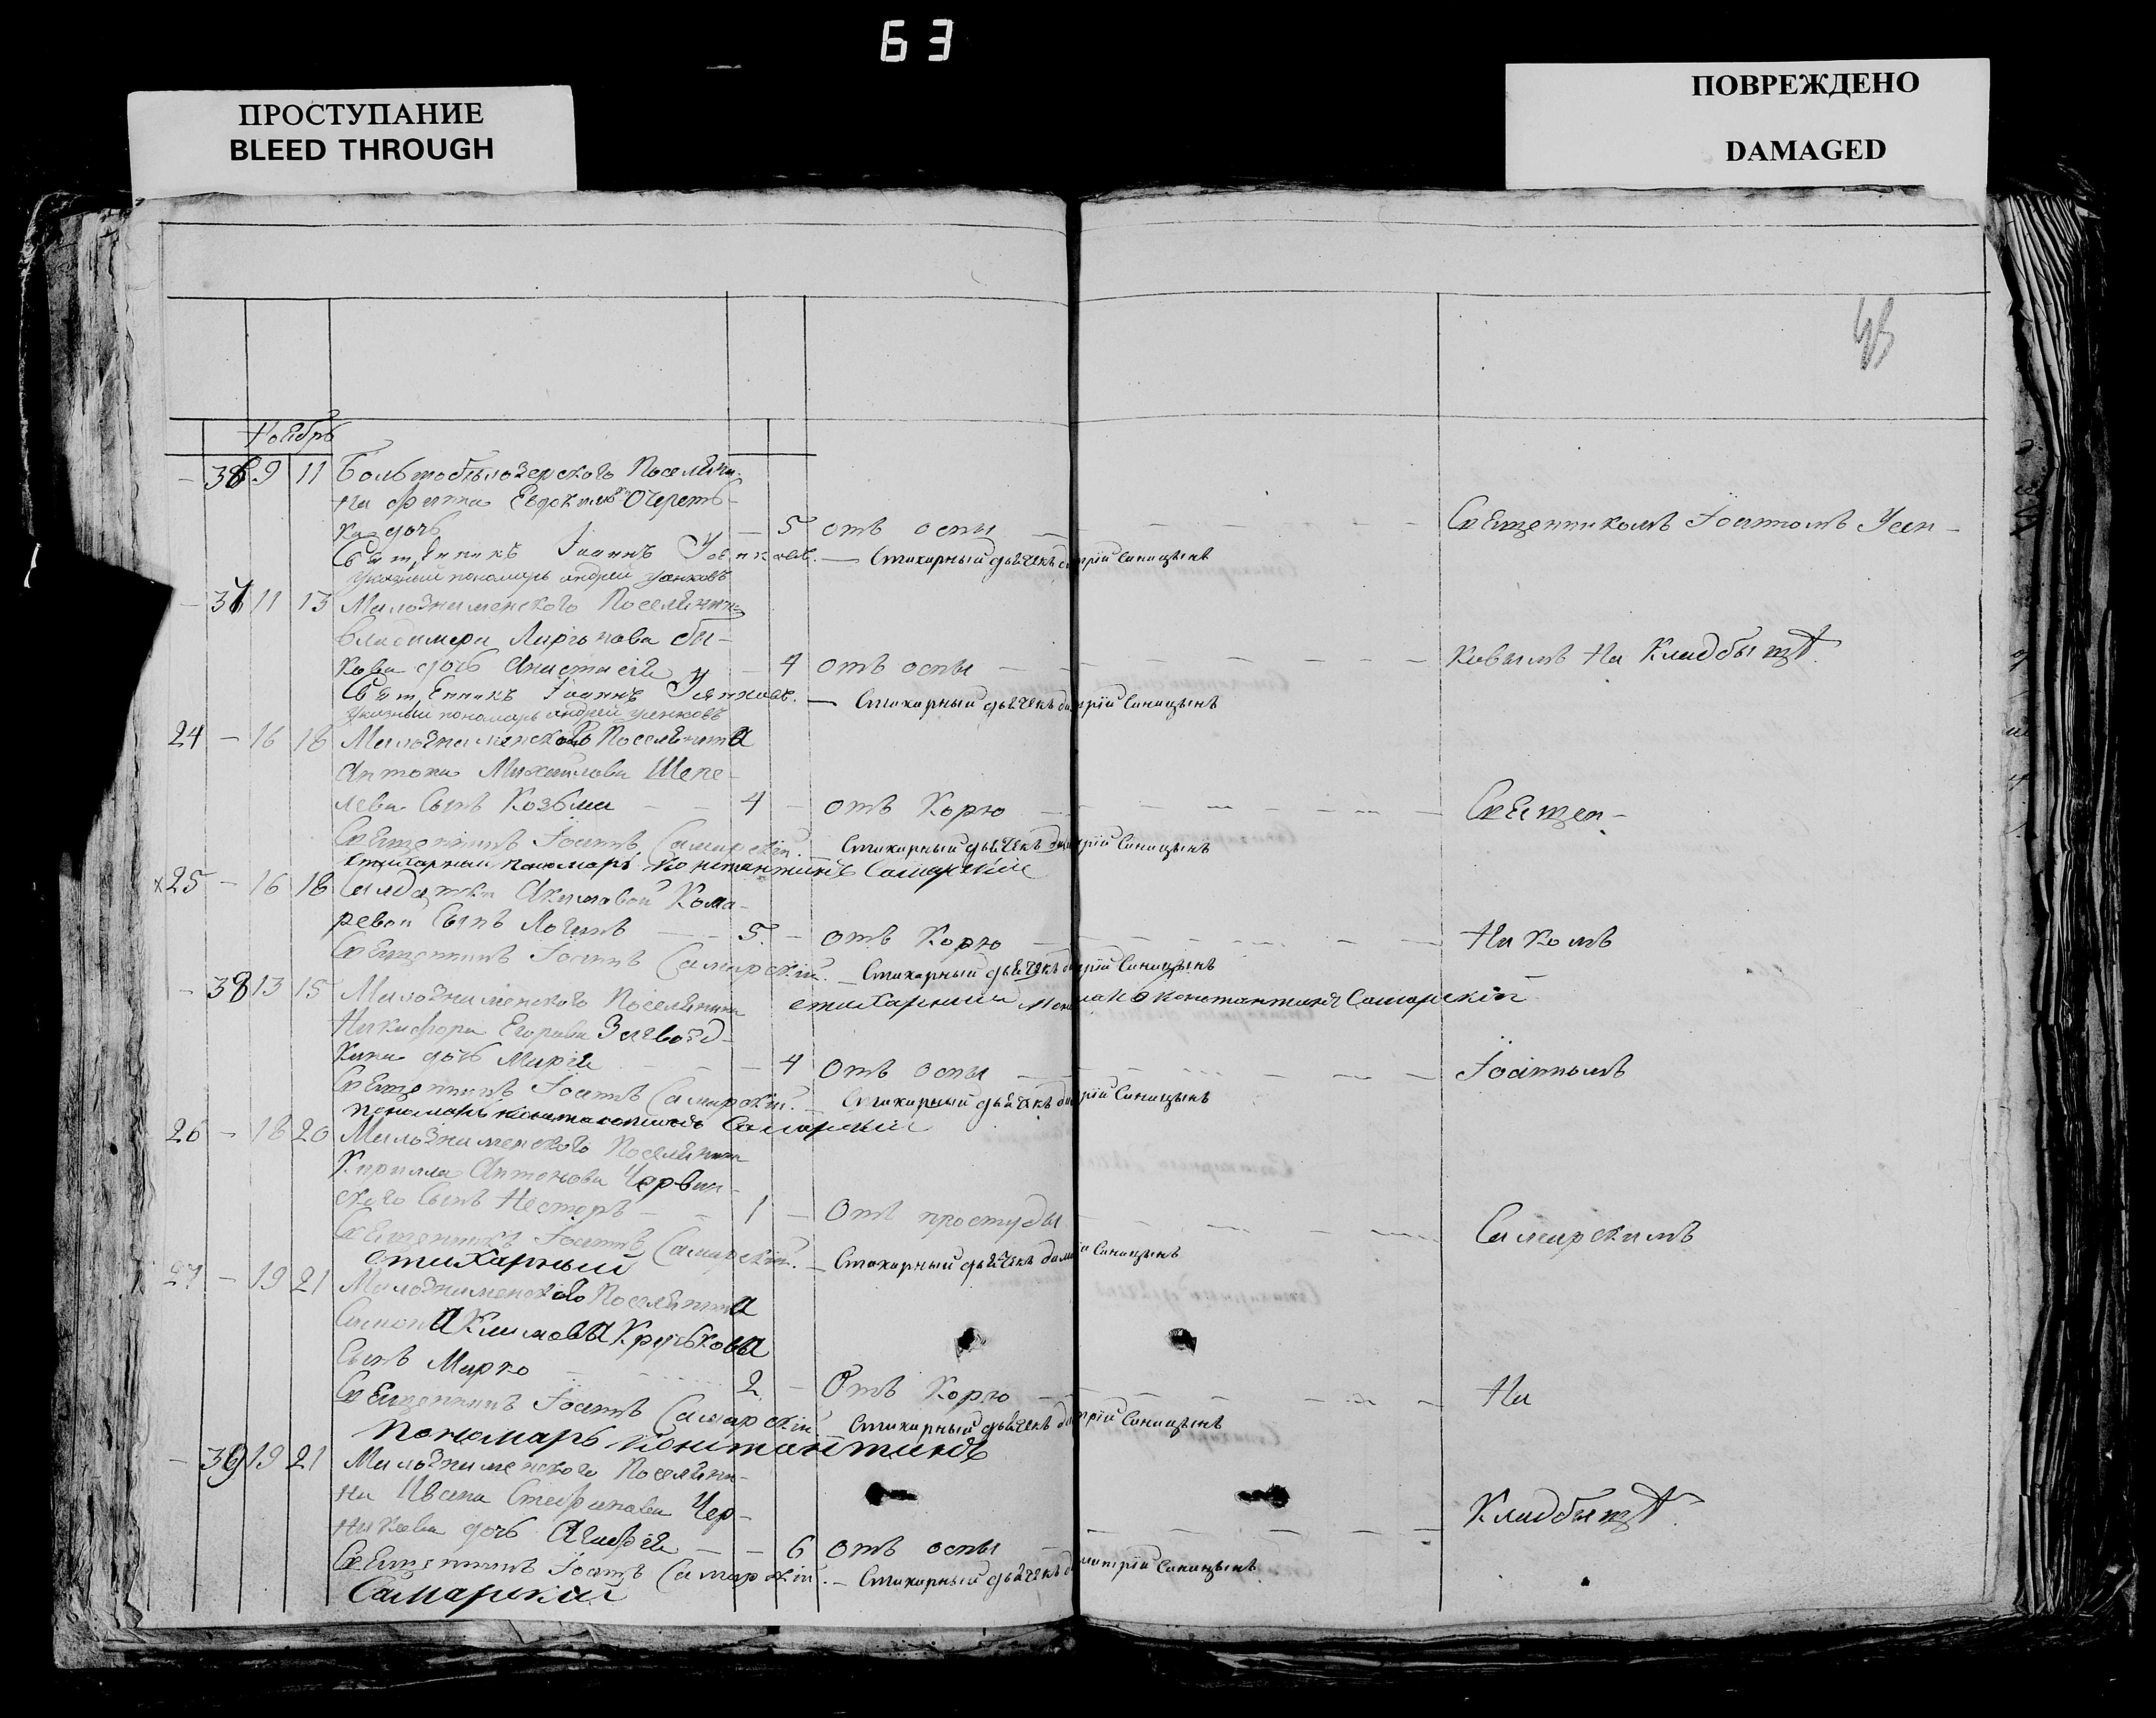 63
ПРОСТУПАНИЕ
BLEED THROUGH
ПОВРЕЖДЕНО
DAMAGED
Ноябрь
– 36 9 11 Большобѣлозерского Поселяни-
на Очереть-
ка дочь – 5 отъ оспы – Священникомъ Іоанномъ Усен-
Священникъ Іоаннъ – Стихарный дьячекъ Димитрій Синицынъ
Указный пономарь андрей усенковъ
– 37 11 13 Малознаменского Поселянина
Владимера Би-
кова дочь Анастасія – 4 отъ оспы – ковымъ На Кладбыщѣ.
Священникъ Іоаннъ – Стихарный дьячекъ Димитрій Синицынъ
Указный пономарь андрей усенковъ
24 – 16 18 Малознаменского Поселянина
Антона Михайлова Шепе-
лева Сынъ Козьма – 4 – отъ Корю – Священ-
Священникъ Іоаннъ Самарскій. – Стихарный дьячекъ Димитрій Синицынъ
стихарный пономарь Константинъ Самарскій
х 25 – 16 18 Салдатки Акимовой Кома-
ревой Сынъ Логинъ – 5. – отъ Корю – Никомъ
Священникъ Іоаннъ Самарскій. – Стихарный дьячекъ Димитрій Синицынъ
– 38 13 15 Малознаменского Поселянина стихарный Константинъ Самарскій
Никифора Егорова
дочь Марія – 4 Отъ оспы – Іоанномъ
Священникъ Іоаннъ Самарскій. – Стихарный дьячекъ Димитрій Синицынъ
пономарь Константинъ Самарскій
26 – 18 20 Малознаменского Поселянина
Кирилла Антонова Червин-
ского Сынъ Несторъ – 1 – Отъ простуды – Самарскимъ
Священникъ Іоаннъ Самарскій. – Стихарный дьячекъ Димитрій Синицынъ
стихарный
27 – 19 21 Малознаменского Поселянина
Климова
Сынъ Марко – 2 – Отъ Корю – На
Священникъ Іоаннъ Самарскій – Стихарный дьячекъ Димитрій Синицынъ
Пономарь Константинъ
– 39 19 21 Малознаменского Поселяни-
на Ивана Стефанова Чер-
никова дочь Агафія – 6 отъ оспы – Кладбыщѣ.
Священникъ Іоаннъ Самарскій. – Стихарный дьячекъ Димитрій Синицынъ
Самарскій